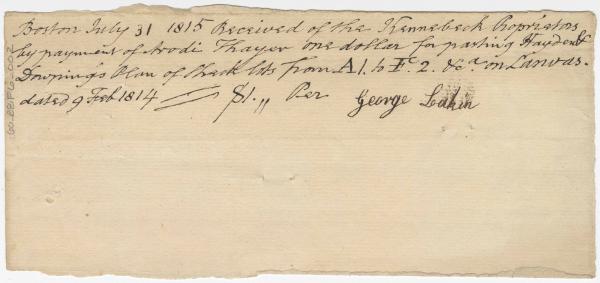 Boston July 31 1815 Received of the Kennebeck Proprietors
by payment of Arodi Thayer one dollar for pasting Hayden &
Downing's Plan of Back lots from A 1. to F. 2. &ca. on Canvas.
dated 9 Feb 1814 — $1.,, Per George Lakin